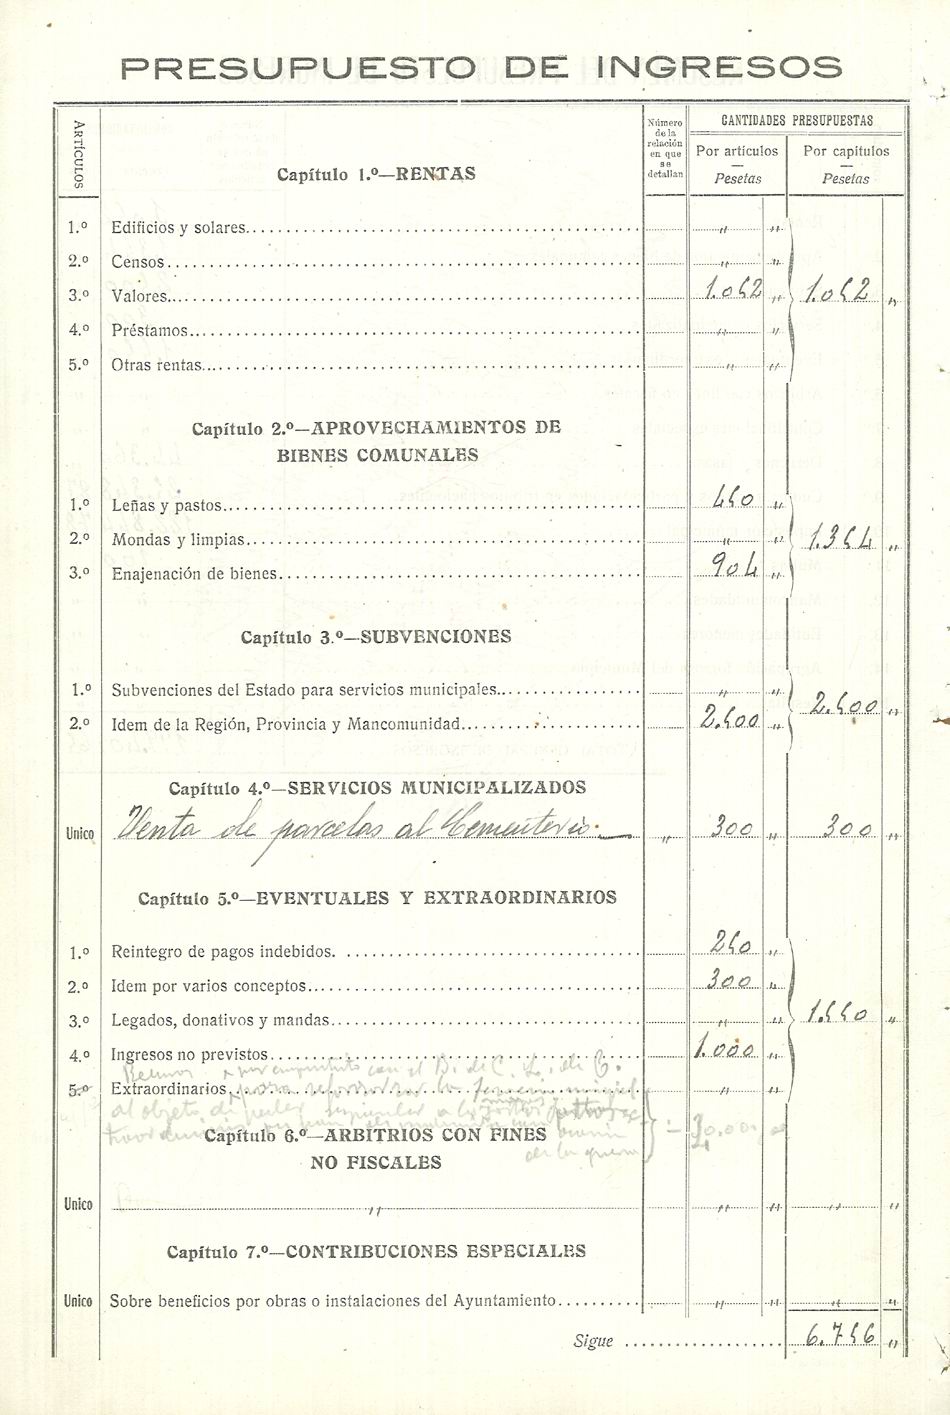 PRESUPUESTO DE INGRESOS
ARTÍCULOS
Número de la relación en que se detallan
CANTIDADES PRESUPUESTAS
Por artículos — Pesetas
Por capítulos — Pesetas
Capítulo 1.º—RENTAS
1.º Edificios y solares.......... „ „
2.º Censos.......... „ „
3.º Valores.......... 1.052 „ 1.052 „
4.º Préstamos.......... „ „
5.º Otras rentas.......... „ „
Capítulo 2.º—APROVECHAMIENTOS DE
BIENES COMUNALES
1.º Leñas y pastos.......... 450 „
2.º Mondas y limpias.......... „ „ 1.354 „
3.º Enajenación de bienes.......... 904 „
Capítulo 3.º—SUBVENCIONES
1.º Subvenciones del Estado para servicios municipales.......... „ „
2.º Idem de la Región, Provincia y Mancomunidad.......... 2.500 „ 2.500 „
Capítulo 4.º—SERVICIOS MUNICIPALIZADOS
Unico Venta de parcelas al Cementerio.— „ 300 „ 300 „
Capítulo 5.º—EVENTUALES Y EXTRAORDINARIOS
1.º Reintegro de pagos indebidos. .......... 250 „
2.º Idem por varios conceptos.......... 300 „
3.º Legados, donativos y mandas.......... „ „ 1.550 „
4.º Ingresos no previstos.......... 1.000 „
con el B. de C. L. de
5.º Extraordinarios.......... „ „
al objeto de poder
Capítulo 6.º—ARBITRIOS CON FINES
NO FISCALES
de la guerra
Unico „ „ „ „ „
Capítulo 7.º—CONTRIBUCIONES ESPECIALES
Unico Sobre beneficios por obras o instalaciones del Ayuntamiento.......... „ „ „ „
Sigue .......... 6.756 „